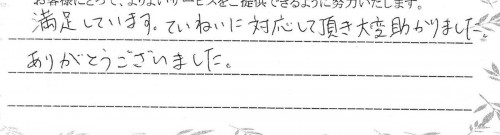 お客様にとって、よりよいサービスをご提供できるように努力いたします。
満足しています。ていねいに対応して頂き大変助かりました。
ありがとうございました。